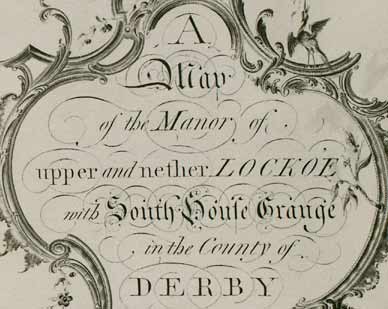 A
Map
of the Manor of
upper and nether LOCKOE
with South House Grange
in the County of
DERBY